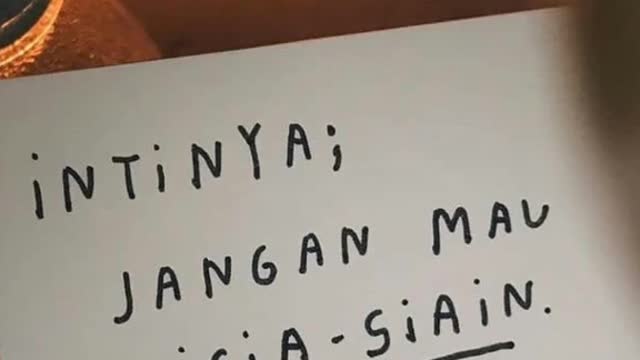 iNTiNYA;
JANGAN MAU
iSiA-SiAiN.